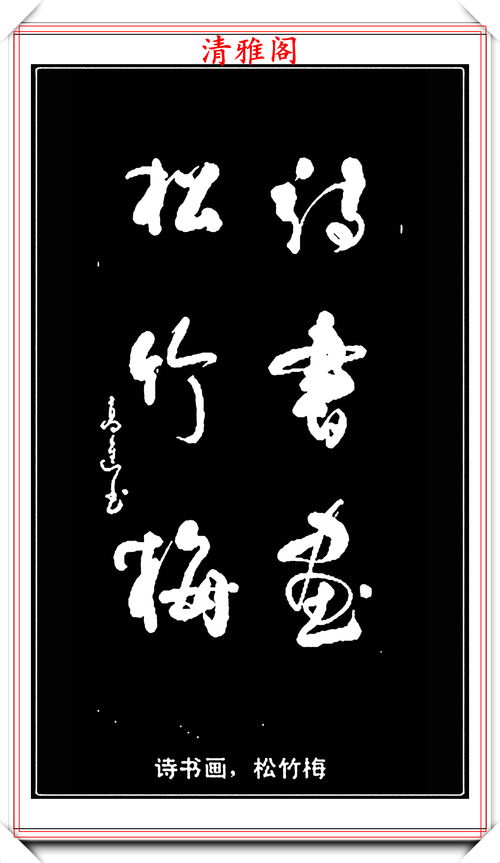 清雅阁
詩書画
松竹梅
诗书画，松竹梅